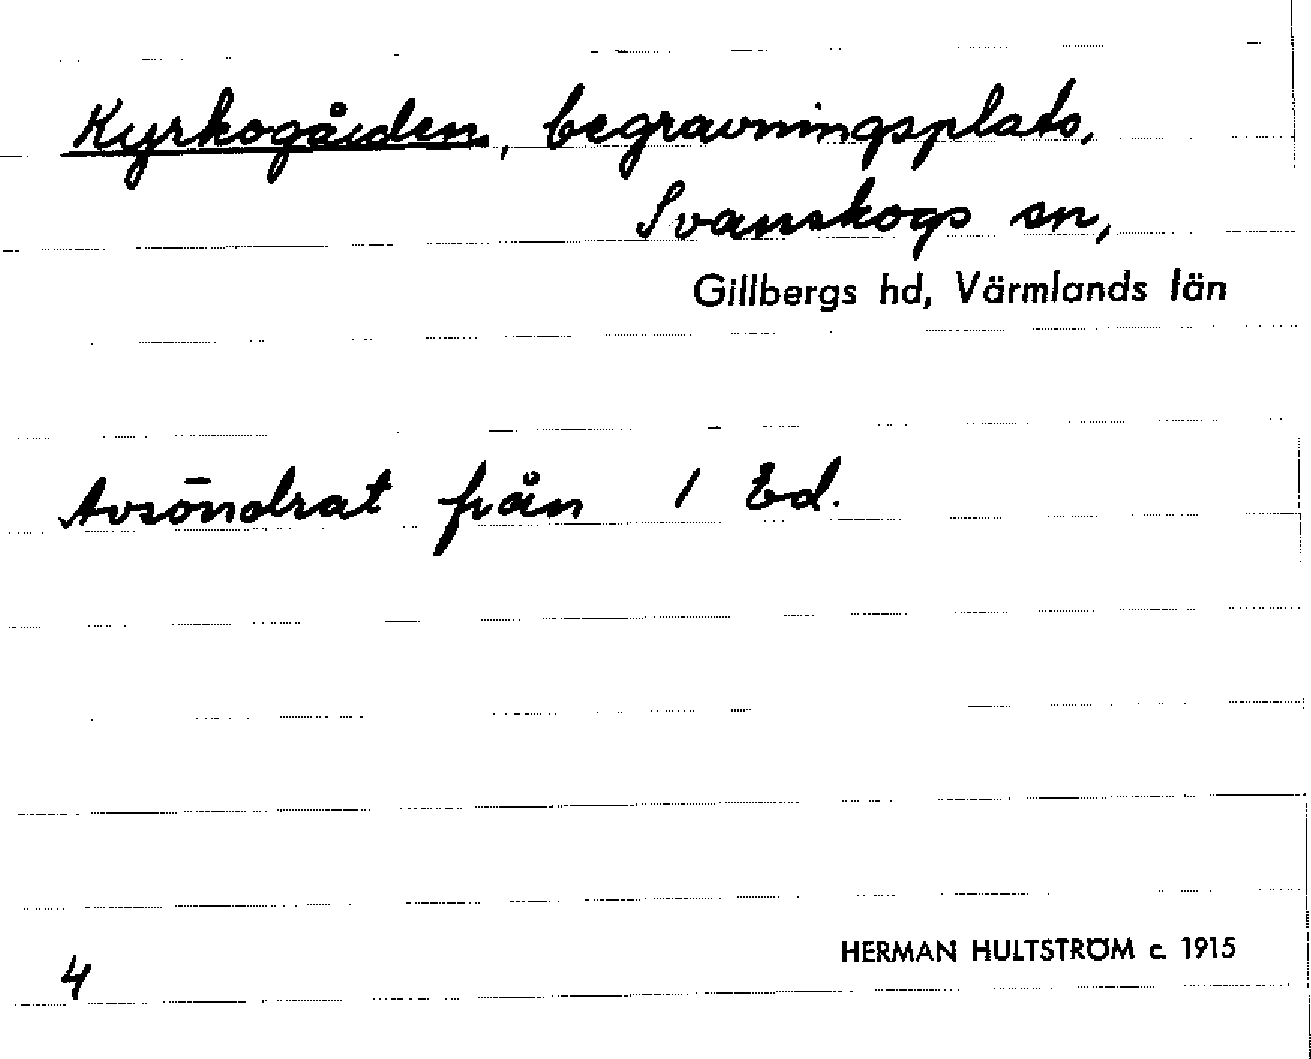 Kyrkogården, begravningsplats,
Svanskogs sn,
Gillbergs hd, Värmlands län
Avsöndrat från 1 Ed.
HERMAN HULTSTRÖM c. 1915
4